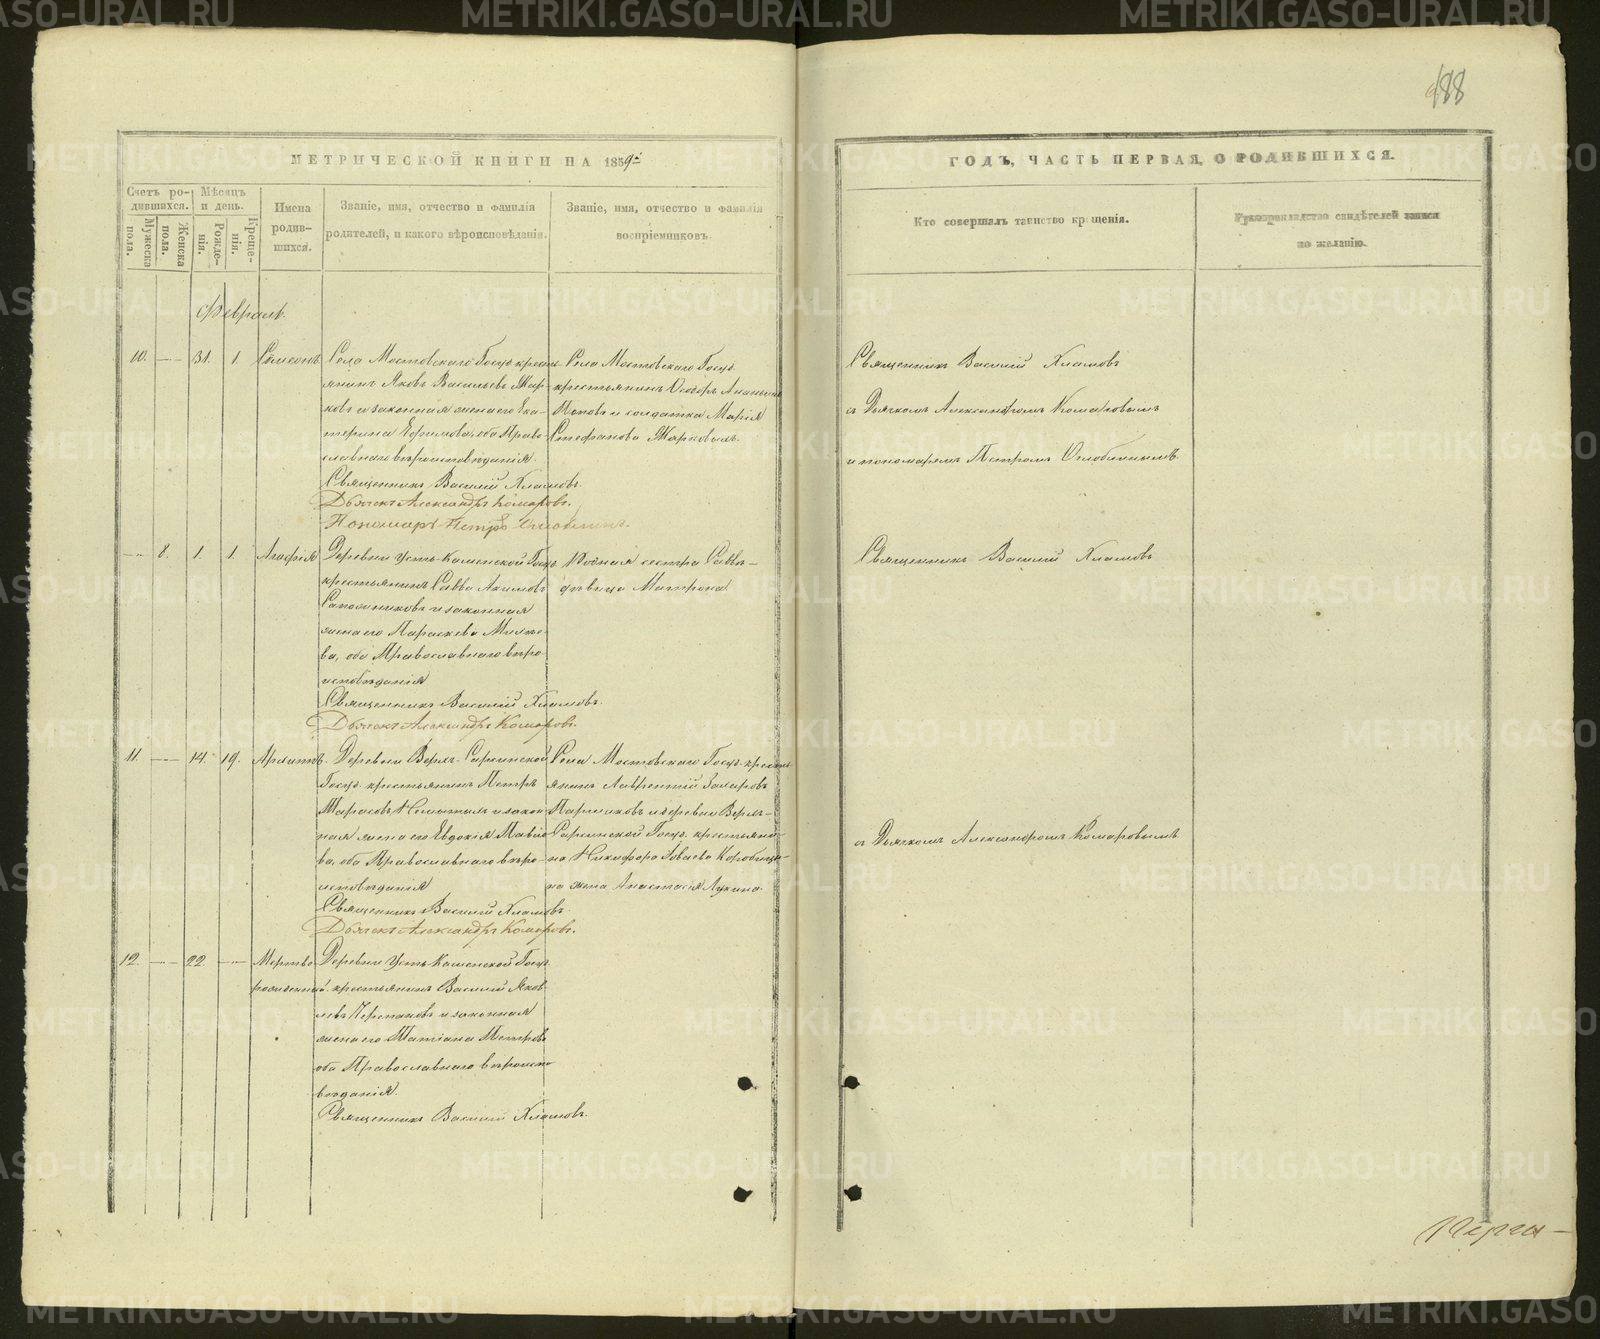 188
МЕТРИЧЕСКОЙ КНИГИ НА 1859й
ГОДЪ, ЧАСТЬ ПЕРВАЯ, О РОДИВШИХСЯ.
Счетъ ро-
дившихся.
Мужеска
пола.
Женска
пола.
Мѣсяцъ
и день.
Рожде-
нія.
Креще-
нія.
Имена
родив-
шихся.
Званіе, имя, отчество и фамилія
родителей, и какого вѣроисповѣданія.
Званіе, имя, отчество и фамилія
воспріемниковъ.
Кто совершалъ таинство крещенія.
Рукоприкладство свидѣтелей записи
по желанію.
Февраль.
10. — 31. 1. Сѵмеонъ.
Села Мостовскаго Госуд. кресть-
янинъ Яковъ Васильевъ Жар-
ковъ и законная жена его Ека-
терина Ефимова, оба Право-
славнаго вѣроисповѣданія.
Священникъ Василій Хламовъ.
Дьячекъ Александръ Комаровъ.
Пономарь Петръ
Села Мостовскаго Госуд.
крестьянинъ Ѳеодоръ Ананьинъ
Поповъ и солдатка Марія
Стефанова Жаркова.
Священникъ Василій Хламовъ
съ Дьячкомъ Александромъ Комаровымъ
и пономаремъ Петромъ Оглоблинымъ.
— 8. 1. 1. Агафія
Деревни Усть-Каменской Госуд.
крестьянинъ Савва Акимовъ
Сапожниковъ и законная
жена его Параскева
ва, оба Православнаго вѣро-
исповѣданія
Священникъ Василій Хламовъ.
Дьячекъ Александръ Комаровъ.
Родная сестра Саввы
дѣвица Матрона
Священникъ Василій Хламовъ
11. — 14. 19. Архиппъ.
Деревни Верхъ-Саринской
Госуд. крестьянинъ Петръ
Тарасовъ и закон-
ная жена его Евдокія Павло-
ва, оба Православнаго вѣро-
исповѣданія
Священникъ Василій Хламовъ.
Дьячекъ Александръ Комаровъ.
Села Мостовскаго Госуд. кресть-
янинъ Лаврентій Захаровъ
и деревни Верхъ-
Саринской Госуд. крестьяни-
на Никифора
на жена Анастасія Лукина.
съ Дьячкомъ Александромъ Комаровымъ
12. — 22. — Мертво-
рожденный.
Деревни Усть Каменской Госуд.
крестьянинъ Василій Яков-
левъ и законная
жена его Татіана Петрова
оба Православнаго вѣроиспо-
вѣданія.
Священникъ Василій Хламовъ.
METRIKI.GASO-URAL.RU